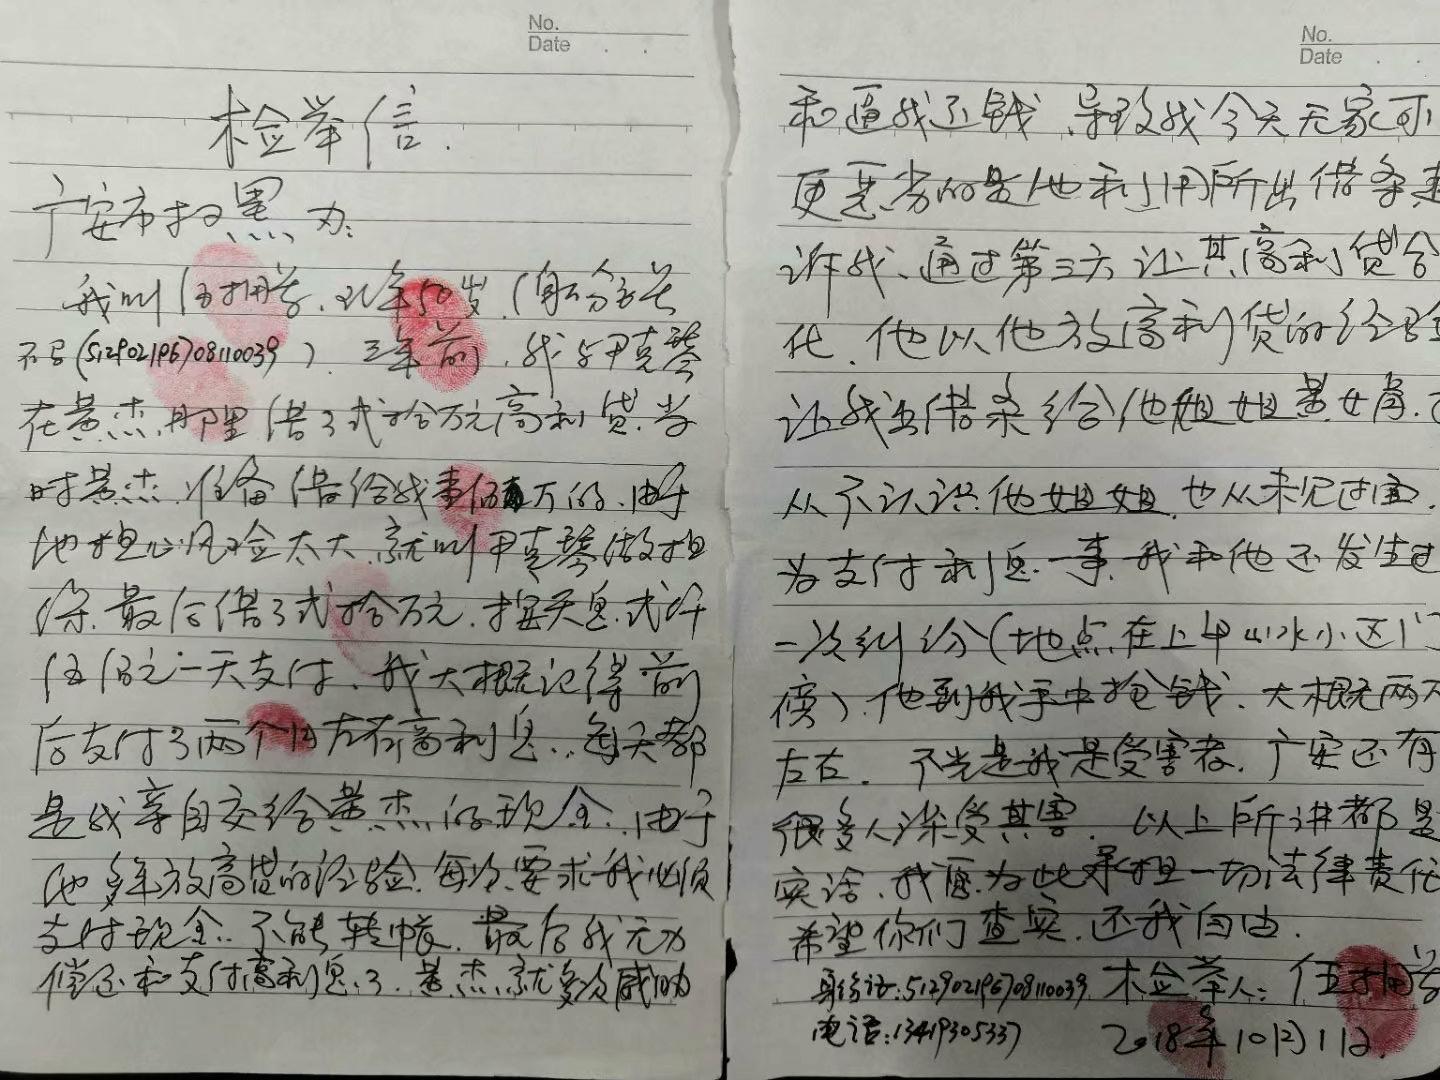 No.
Date
检举信.
广安市扫黑办:
我叫伍拥学.现年50岁.(身份证
号(512902196708110039).三年前.我与甲克琴
在黄杰那里借了弍拾万元高利贷.当
时黄杰.准备借给我万的.由于
他担心风险太大.就叫甲克琴做担
保.最后借了弍拾万元.按天息.弍仟
伍佰元一天支付.我大概记得前
后支付了两个月左右高利息..每天都
是我亲自交给黄杰的现金.由于
他多年放高贷的经验.每次要求我必须
支付现金..不能转帐.最后我无力
偿还和支付高利息了.黄杰就多次威胁
No.
Date
和逼我还钱.导致我今天无家可
更恶劣的是他利用所出借条起
诉我、通过第三方让其高利贷合
化.他以他放高利贷的经验
让我出借条给他姐姐黄女
从不认识他姐姐.也从未见过面.
为支付利息一事.我和他还发生过
一次纠纷(地点在上中山水小区门
傍).他到我手中抢钱.大概两万
左右. 不光是我是受害者.广安还有
很多人深受其害. 以上所讲都是
实话.我愿为此承担一切法律责任
希望你们查实.还我自由.
身份证:512902196708110039 检举人:伍拥学
电话:13419305337 2018年10月11日.